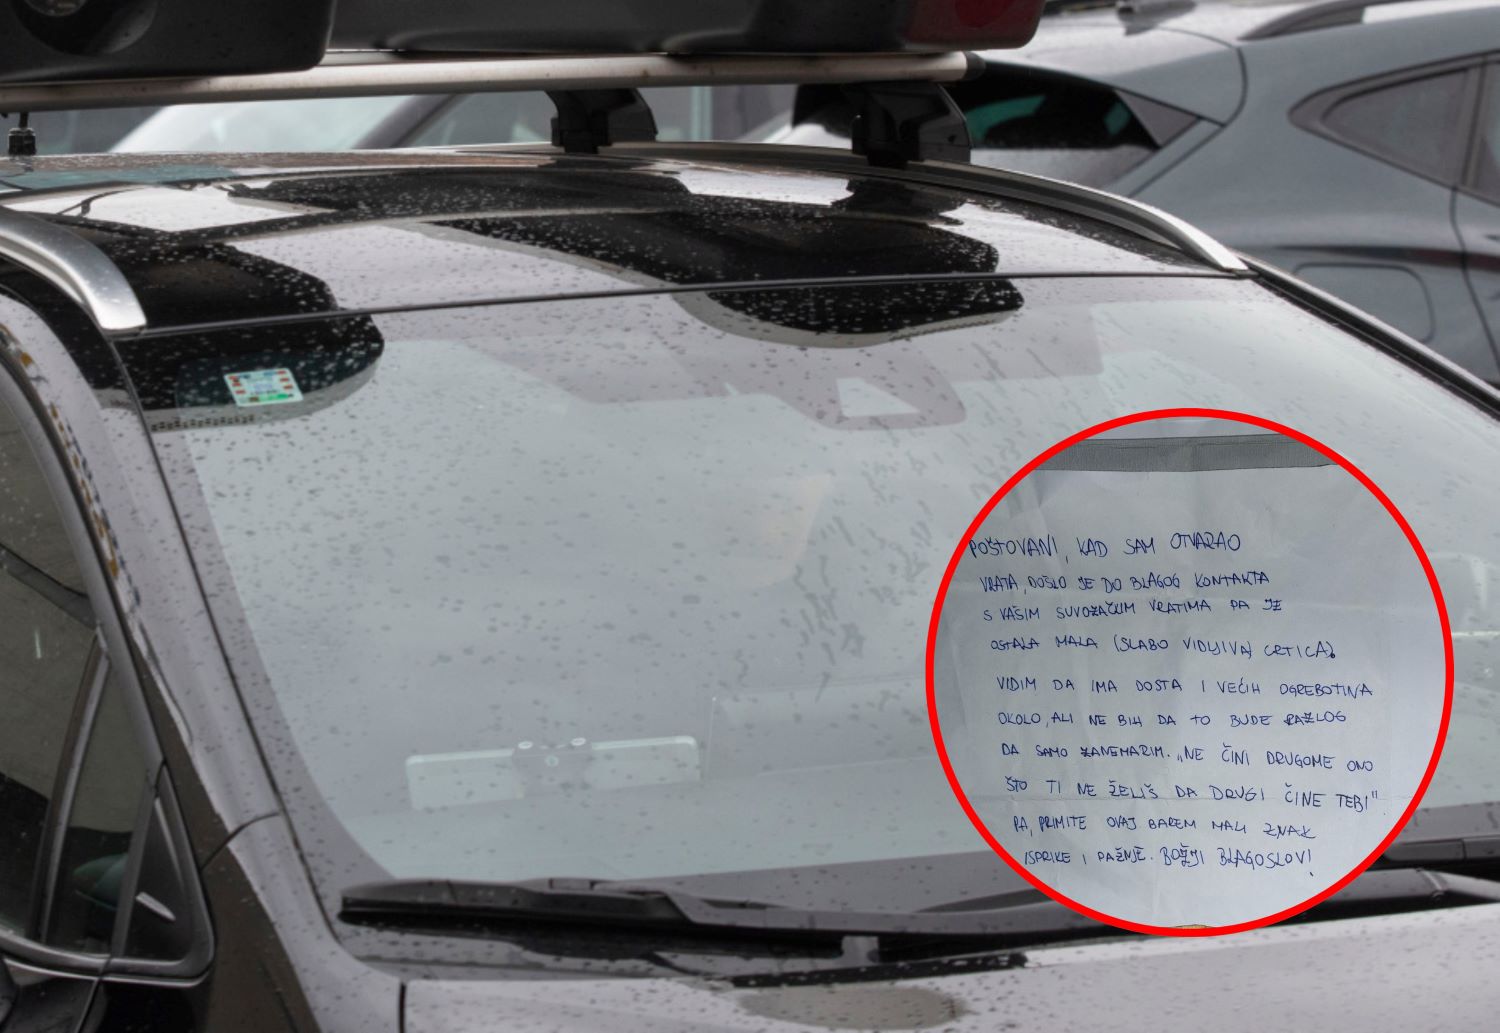 POŠTOVANI, KAD SAM OTVARAO
VRATA, DOŠLO JE DO BLAGOG KONTAKTA
S VAŠIM SUVOZAČKIM VRATIMA PA JE
OSTALA MALA (SLABO VIDLJIVA) CRTICA.
VIDIM DA IMA DOSTA I VEĆIH OGREBOTINA
OKOLO, ALI NE BIH DA TO BUDE RAZLOG
DA SAMO ZANEMARIM. „NE ČINI DRUGOME ONO
ŠTO TI NE ŽELIŠ DA DRUGI ČINE TEBI"
PA, PRIMITE OVAJ BAREM MALI ZNAK
ISPRIKE I PAŽNJE. BOŽJI BLAGOSLOV!